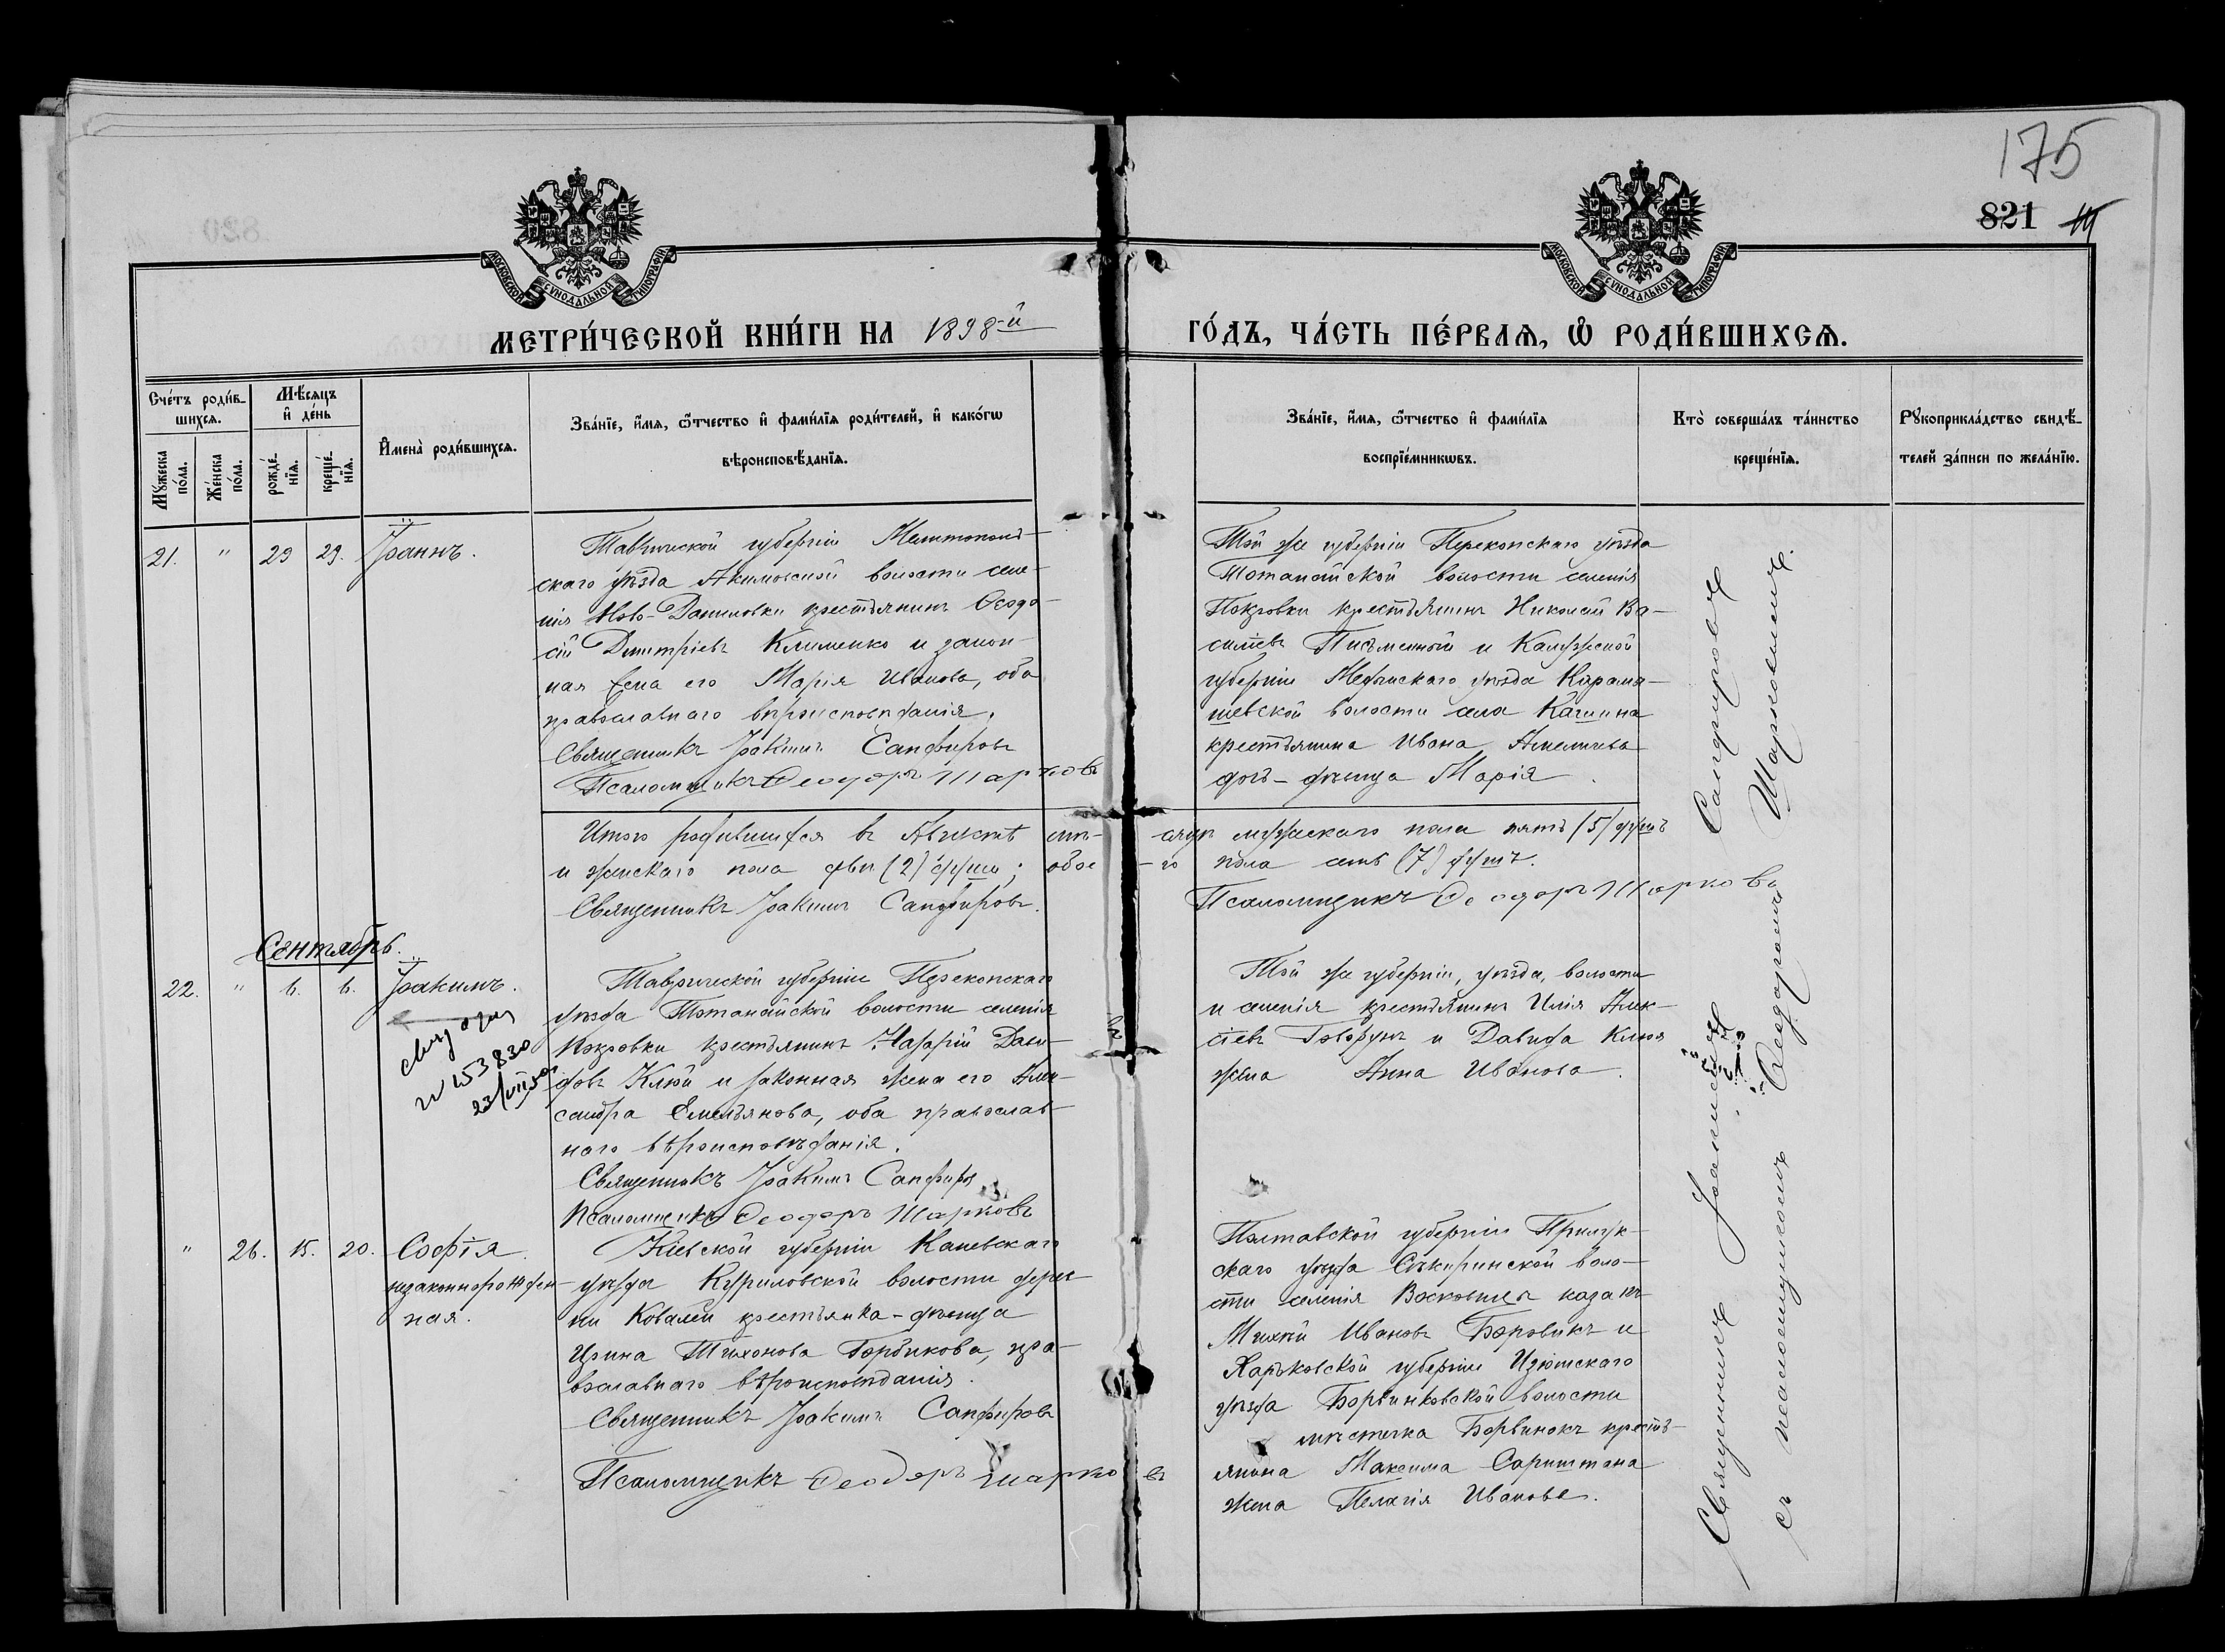 175
821
МОСКОВСКОЙ СѴНОДАЛЬНОЙ ТИПОГРАФІИ
МОСКОВСКОЙ СѴНОДАЛЬНОЙ ТИПОГРАФІИ
МЕТРИ́ЧЕСКОЙ КНИ́ГИ НА 1898-й
ГО́ДЪ, ЧА́СТЬ ПЕ́РВАЯ, Ѡ҆ РОДИ́ВШИХСЯ.
Сче́тъ роди́в-
шихсѧ.
Мꙋ́жеска по́ла.
Же́нска по́ла.
Мѣ́сѧцъ
и҆ де́нь
рожде́-
нїѧ.
креще́-
нїѧ.
И҆мена̀ роди́вшихсѧ.
Зва́нїе, и҆́мѧ, ѻ҆́тчество и҆ фами́лїѧ роди́телей, и҆ како́гѡ
вѣроисповѣ́данїѧ.
Зва́нїе, и҆́мѧ, ѻ҆́тчество и҆ фами́лїѧ
воспрїе́мникѡвъ.
Кто̀ соверша́лъ та́инство
креще́нїѧ.
Рꙋкоприкла́дство свидѣ́-
телей за́писи по жела́нїю.
21. " 29 29. Іоаннъ.
Таврической губерніи Мелитополь-
скаго уѣзда Акимовской волости селе-
нія Ново-Даниловки крестьянинъ Ѳеодо-
сій Димитріевъ Клименко и закон-
ная жена его Марія Иванова, оба
православнаго вѣроисповѣданія.
Священникъ Іоакимъ Сапфировъ
Псаломщикъ Ѳеодоръ Шарковъ
Той же губерніи Перекопскаго уѣзда
Тотанайской волости селенія
Покровки крестьянинъ Николай Ва-
сильевъ Письменный и Калужской
губерніи Медынскаго уѣзда Карама-
шевской волости села Качиина
крестьянина Ивана Амеличева
дочь-дѣвица Марія.
Итого родившихся въ Августѣ мѣ-
сяцѣ мужескаго пола пять (5) душъ
и женскаго пола двѣ (2) души; обое-
го пола семь (7) душъ.
Священникъ Іоакимъ Сапфировъ.
Псаломщикъ Ѳеодоръ Шарковъ
Сентябрь.
22. " 6. 6. Іоакимъ.
№ 153830
Таврической губерніи Перекопскаго
уѣзда Тотанайской волости селенія
Покровки крестьянинъ Назарій Дави-
довъ Клюй и законная жена его Алек-
сандра Емельянова, оба православ-
наго вѣроисповѣданія.
Священникъ Іоакимъ Сапфировъ
Псаломщикъ Ѳеодоръ Шарковъ
Той же губерніи, уѣзда, волости
и селенія крестьянинъ Илія Алек-
сіевъ Говорунъ и Давида Клюя
жена Анна Иванова.
" 26. 15. 20. Софія
незаконнорожден-
ная.
Кіевской губерніи Каневскаго
уѣзда Куриловской волости дерев-
ни Ковалей крестьянка-дѣвица
Ирина Тихонова Горбикова, пра-
вославнаго вѣроисповѣданія.
Священникъ Іоакимъ Сапфировъ
Псаломщикъ Ѳеодоръ Шарковъ
Полтавской губерніи Прилук-
скаго уѣзда Сѣкиринской воло-
сти селенія Восковцы казакъ
Михей Ивановъ Боровикъ и
Харьковской губерніи Изюмскаго
уѣзда Борвинковской волости
мѣстечка Борвинокъ кресть-
янина Максима Сориштана
жена Пелагія Иванова.
Священникъ Іоакимъ Сапфировъ
съ псаломщикомъ Ѳеодоромъ Шарковымъ.